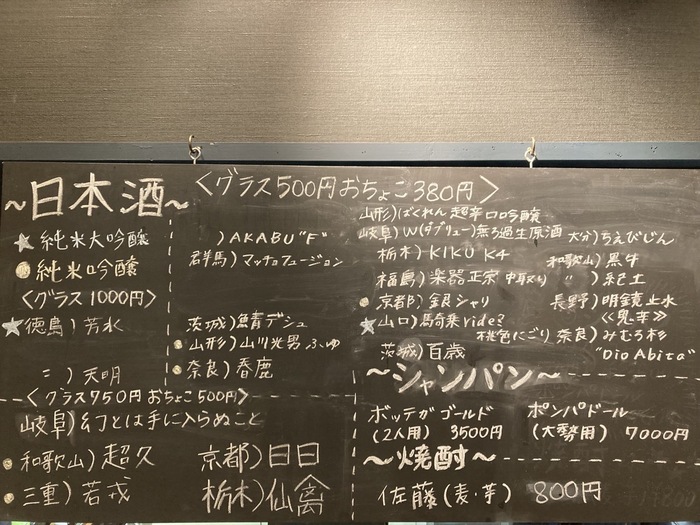 ～日本酒～
★純米大吟醸
●純米吟醸
〈グラス1000円〉
★徳島）芳水
〃）天明
〈グラス500円おちょこ380円〉
）AKABU"F"
群馬）マッチョフュージョン
茨城）鯖デシュ
●山形）山川光男 ふゆ
●奈良）春鹿
山形）ばくれん 超辛口吟醸
岐阜）W（ダブリュー）無ろ過生原酒
栃木）KIKU K4
福島）楽器正宗 中取り
●京都）金良シャリ
★山口）馬奇乗 ride?
桃色にごり
茨城）百歳
大分）ちえびじん
和歌山）黒牛
〃）紀土
長野）明鏡止水
《鬼辛》
奈良）みむろ杉
"Dio Abita"
〈グラス750円おちょこ500円〉
岐阜）幻とは手に入らぬこと
●和歌山）超久
●三重）若戎
京都）日日
栃木）仙禽
～シャンパン～
ボッテガゴールド
（2人用）3500円
ポンパドール
（大勢用）7000円
～焼酎～
佐藤（麦・芋）800円